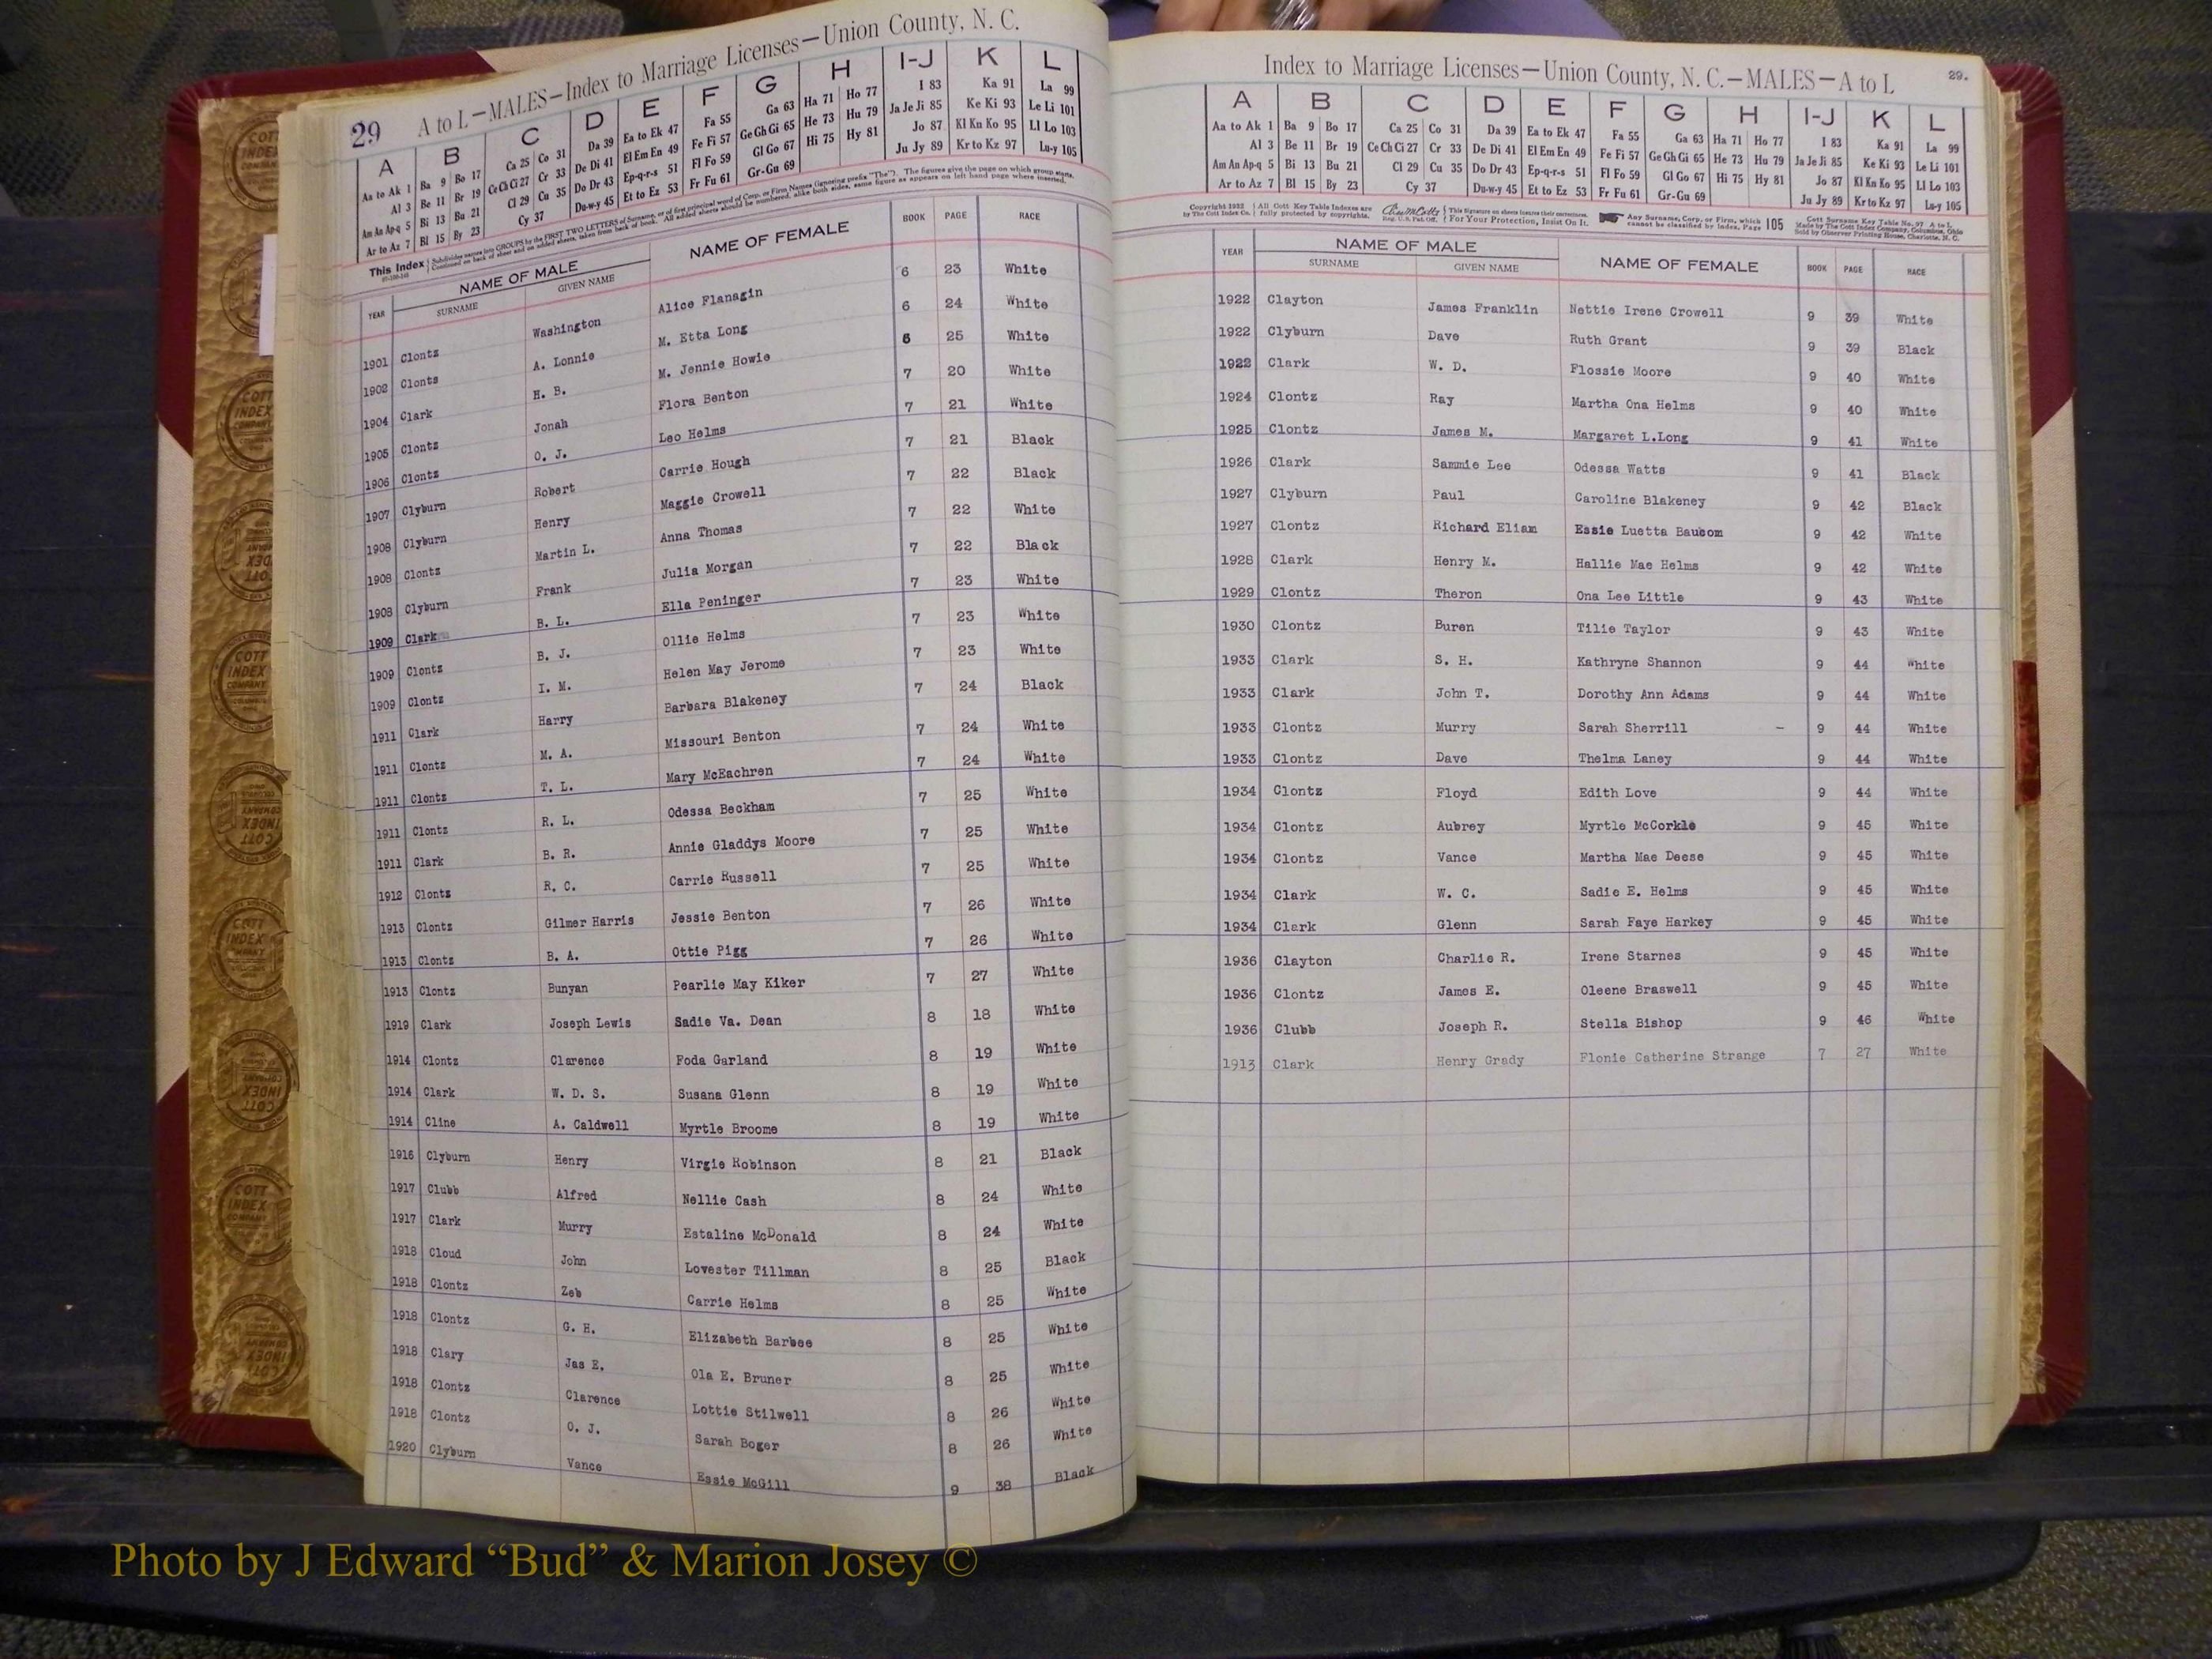 29 A to L—MALES—Index to Marriage Licenses—Union County, N. C.
A B C D E F G H I-J K L
Aa to Ak 1 Ba 9 Bo 17 Ca 25 Co 31 Da 39 Ea to Ek 47 Fa 55 Ga 63 Ha 71 Ho 77 I 83 Ka 91 La 99
Al 3 Be 11 Br 19 Ce Ch Ci 27 Cr 33 De Di 41 El Em En 49 Fe Fi 57 Ge Gh Gi 65 He 73 Hu 79 Ja Je Ji 85 Ke Ki 93 Le Li 101
Am An Ap-q 5 Bi 13 Bu 21 Cl 29 Cu 35 Do Dr 43 Ep-q-r-s 51 Fl Fo 59 Gl Go 67 Hi 75 Hy 81 Jo 87 Kl Kn Ko 95 Ll Lo 103
Ar to Az 7 Bl 15 By 23 Cy 37 Du-w-y 45 Et to Ez 53 Fr Fu 61 Gr-Gu 69 Ju Jy 89 Kr to Kz 97 Lu-y 105
This Index { Subdivides names into GROUPS by the FIRST TWO LETTERS of Surname, or of first principal word of Corp. or Firm Names (ignoring prefix "The"). The figures give the page on which group starts.
Continued on back of sheet and on added sheets, taken from back of book. All added sheets should be numbered, alike both sides, same figure as appears on left hand page where inserted.
YEAR NAME OF MALE NAME OF FEMALE BOOK PAGE RACE
SURNAME GIVEN NAME
1901 Clontz Washington Alice Flanagin 6 23 White
1902 Clonts A. Lonnie M. Etta Long 6 24 White
1904 Clark H. B. M. Jennie Howie 6 25 White
1905 Clontz Jonah Flora Benton 7 20 White
1906 Clontz O. J. Leo Helms 7 21 White
1907 Clyburn Robert Carrie Hough 7 21 Black
1908 Clyburn Henry Maggie Crowell 7 22 Black
1908 Clontz Martin L. Anna Thomas 7 22 White
1908 Clyburn Frank Julia Morgan 7 22 Black
1909 Clark B. L. Ella Peninger 7 23 White
1909 Clontz B. J. Ollie Helms 7 23 White
1909 Clontz I. M. Helen May Jerome 7 23 White
1911 Clark Harry Barbara Blakeney 7 24 Black
1911 Clontz M. A. Missouri Benton 7 24 White
1911 Clontz T. L. Mary McEachren 7 24 White
1911 Clontz R. L. Odessa Beckham 7 25 White
1911 Clark B. R. Annie Gladdys Moore 7 25 White
1912 Clontz R. C. Carrie Russell 7 25 White
1913 Clontz Gilmer Harris Jessie Benton 7 26 White
1913 Clontz B. A. Ottie Pigg 7 26 White
1913 Clontz Bunyan Pearlie May Kiker 7 27 White
1919 Clark Joseph Lewis Sadie Va. Dean 8 18 White
1914 Clontz Clarence Foda Garland 8 19 White
1914 Clark W. D. S. Susana Glenn 8 19 White
1914 Cline A. Caldwell Myrtle Broome 8 19 White
1916 Clyburn Henry Virgie Robinson 8 21 Black
1917 Clubb Alfred Nellie Cash 8 24 White
1917 Clark Murry Estaline McDonald 8 24 White
1918 Cloud John Lovester Tillman 8 25 Black
1918 Clontz Zeb Carrie Helms 8 25 White
1918 Clontz G. H. Elizabeth Barbee 8 25 White
1918 Clary Jas E. Ola E. Bruner 8 25 White
1918 Clontz Clarence Lottie Stilwell 8 26 White
1918 Clontz O. J. Sarah Boger 8 26 White
1920 Clyburn Vance Essie McGill 9 38 Black
Index to Marriage Licenses—Union County, N. C.—MALES—A to L 29.
A B C D E F G H I-J K L
Aa to Ak 1 Ba 9 Bo 17 Ca 25 Co 31 Da 39 Ea to Ek 47 Fa 55 Ga 63 Ha 71 Ho 77 I 83 Ka 91 La 99
Al 3 Be 11 Br 19 Ce Ch Ci 27 Cr 33 De Di 41 El Em En 49 Fe Fi 57 Ge Gh Gi 65 He 73 Hu 79 Ja Je Ji 85 Ke Ki 93 Le Li 101
Am An Ap-q 5 Bi 13 Bu 21 Cl 29 Cu 35 Do Dr 43 Ep-q-r-s 51 Fl Fo 59 Gl Go 67 Hi 75 Hy 81 Jo 87 Kl Kn Ko 95 Ll Lo 103
Ar to Az 7 Bl 15 By 23 Cy 37 Du-w-y 45 Et to Ez 53 Fr Fu 61 Gr-Gu 69 Ju Jy 89 Kr to Kz 97 Lu-y 105
Copyright 1932 by The Cott Index Co. { All Cott Key Table Indexes are fully protected by copyrights. Reg. U.S. Pat. Off. { This Signature on sheets insures their correctness. For Your Protection, Insist On It. Any Surname, Corp. or Firm, which cannot be classified by Index, Page 105 Cott Surname Key Table No. 97 A to L
Made by The Cott Index Company, Columbus, Ohio
Sold by Observer Printing House, Charlotte, N. C.
YEAR NAME OF MALE NAME OF FEMALE BOOK PAGE RACE
SURNAME GIVEN NAME
1922 Clayton James Franklin Nettie Irene Crowell 9 39 White
1922 Clyburn Dave Ruth Grant 9 39 Black
1922 Clark W. D. Flossie Moore 9 40 White
1924 Clontz Ray Martha Ona Helms 9 40 White
1925 Clontz James M. Margaret L.Long 9 41 White
1926 Clark Sammie Lee Odessa Watts 9 41 Black
1927 Clyburn Paul Caroline Blakeney 9 42 Black
1927 Clontz Richard Eliam Essie Luetta Baucom 9 42 White
1928 Clark Henry M. Hallie Mae Helms 9 42 White
1929 Clontz Theron Ona Lee Little 9 43 White
1930 Clontz Buren Tilie Taylor 9 43 White
1933 Clark S. H. Kathryne Shannon 9 44 White
1933 Clark John T. Dorothy Ann Adams 9 44 White
1933 Clontz Murry Sarah Sherrill - 9 44 White
1933 Clontz Dave Thelma Laney 9 44 White
1934 Clontz Floyd Edith Love 9 44 White
1934 Clontz Aubrey Myrtle McCorkle 9 45 White
1934 Clontz Vance Martha Mae Deese 9 45 White
1934 Clark W. C. Sadie E. Helms 9 45 White
1934 Clark Glenn Sarah Faye Harkey 9 45 White
1936 Clayton Charlie R. Irene Starnes 9 45 White
1936 Clontz James E. Oleene Braswell 9 45 White
1936 Clubb Joseph R. Stella Bishop 9 46 White
1913 Clark Henry Grady Flonie Catherine Strange 7 27 White
COTT INDEX COMPANY
Photo by J Edward “Bud” & Marion Josey ©